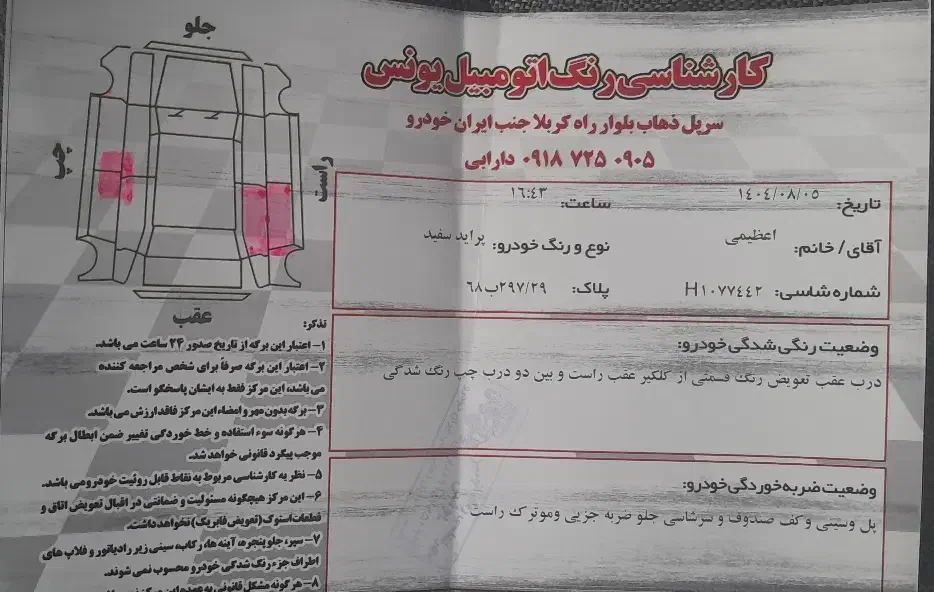 جلو
چپ
راست
عقب
کارشناسی رنگ اتومبیل یونس
سرپل ذهاب بلوار راه کربلا جنب ایران خودرو
۰۹۱۸ ۷۲۵ ۰۹۰۵ دارابی
تاریخ: ۱۴۰۴/۰۸/۰۵ ساعت: ۱۶:۴۳
آقای / خانم: اعظیمی نوع و رنگ خودرو: پراید سفید
شماره شاسی: H۱۰۷۷۴۴۲ پلاک: ۲۹۷/۲۹ب۶۸
وضعیت رنگی شدگی خودرو:
درب عقب تعویض رنگ قسمتی از گلگیر عقب راست و بین دو درب چپ رنگ شدگی
وضعیت ضربه خوردگی خودرو:
پل وسینی و کف صندوف و سرشاسی جلو ضربه جزیی وموترک راست
تذکر:
۱- اعتبار این برگه از تاریخ صدور ۲۴ ساعت می باشد.
۲- اعتبار این برگه صرفاً برای شخص مراجعه کننده
می باشد، این مرکز فقط به ایشان پاسخگو است.
۳- برگه بدون مهر و امضاء این مرکز فاقد ارزش می باشد.
۴- هرگونه سوء استفاده و خط خوردگی تغییر ضمن ابطال برگه
موجب پیگرد قانونی خواهد شد.
۵- نظریه کارشناسی مربوط به نقاط قابل روئیت خودرو می باشد.
۶- این مرکز هیچگونه مسئولیت و ضمانتی در اقبال تعویض اتاق و
قطعات استوک (تعویض فابریک) نخواهد داشت.
۷- سپر، جلو پنجره، آینه ها، رکاب، سینی زیر رادیاتور و فلاپ های
اطراف جزء رنگ شدگی خودرو محسوب نمی شوند.
۸- هرگونه مشکل قانونی به عهده این مرکز